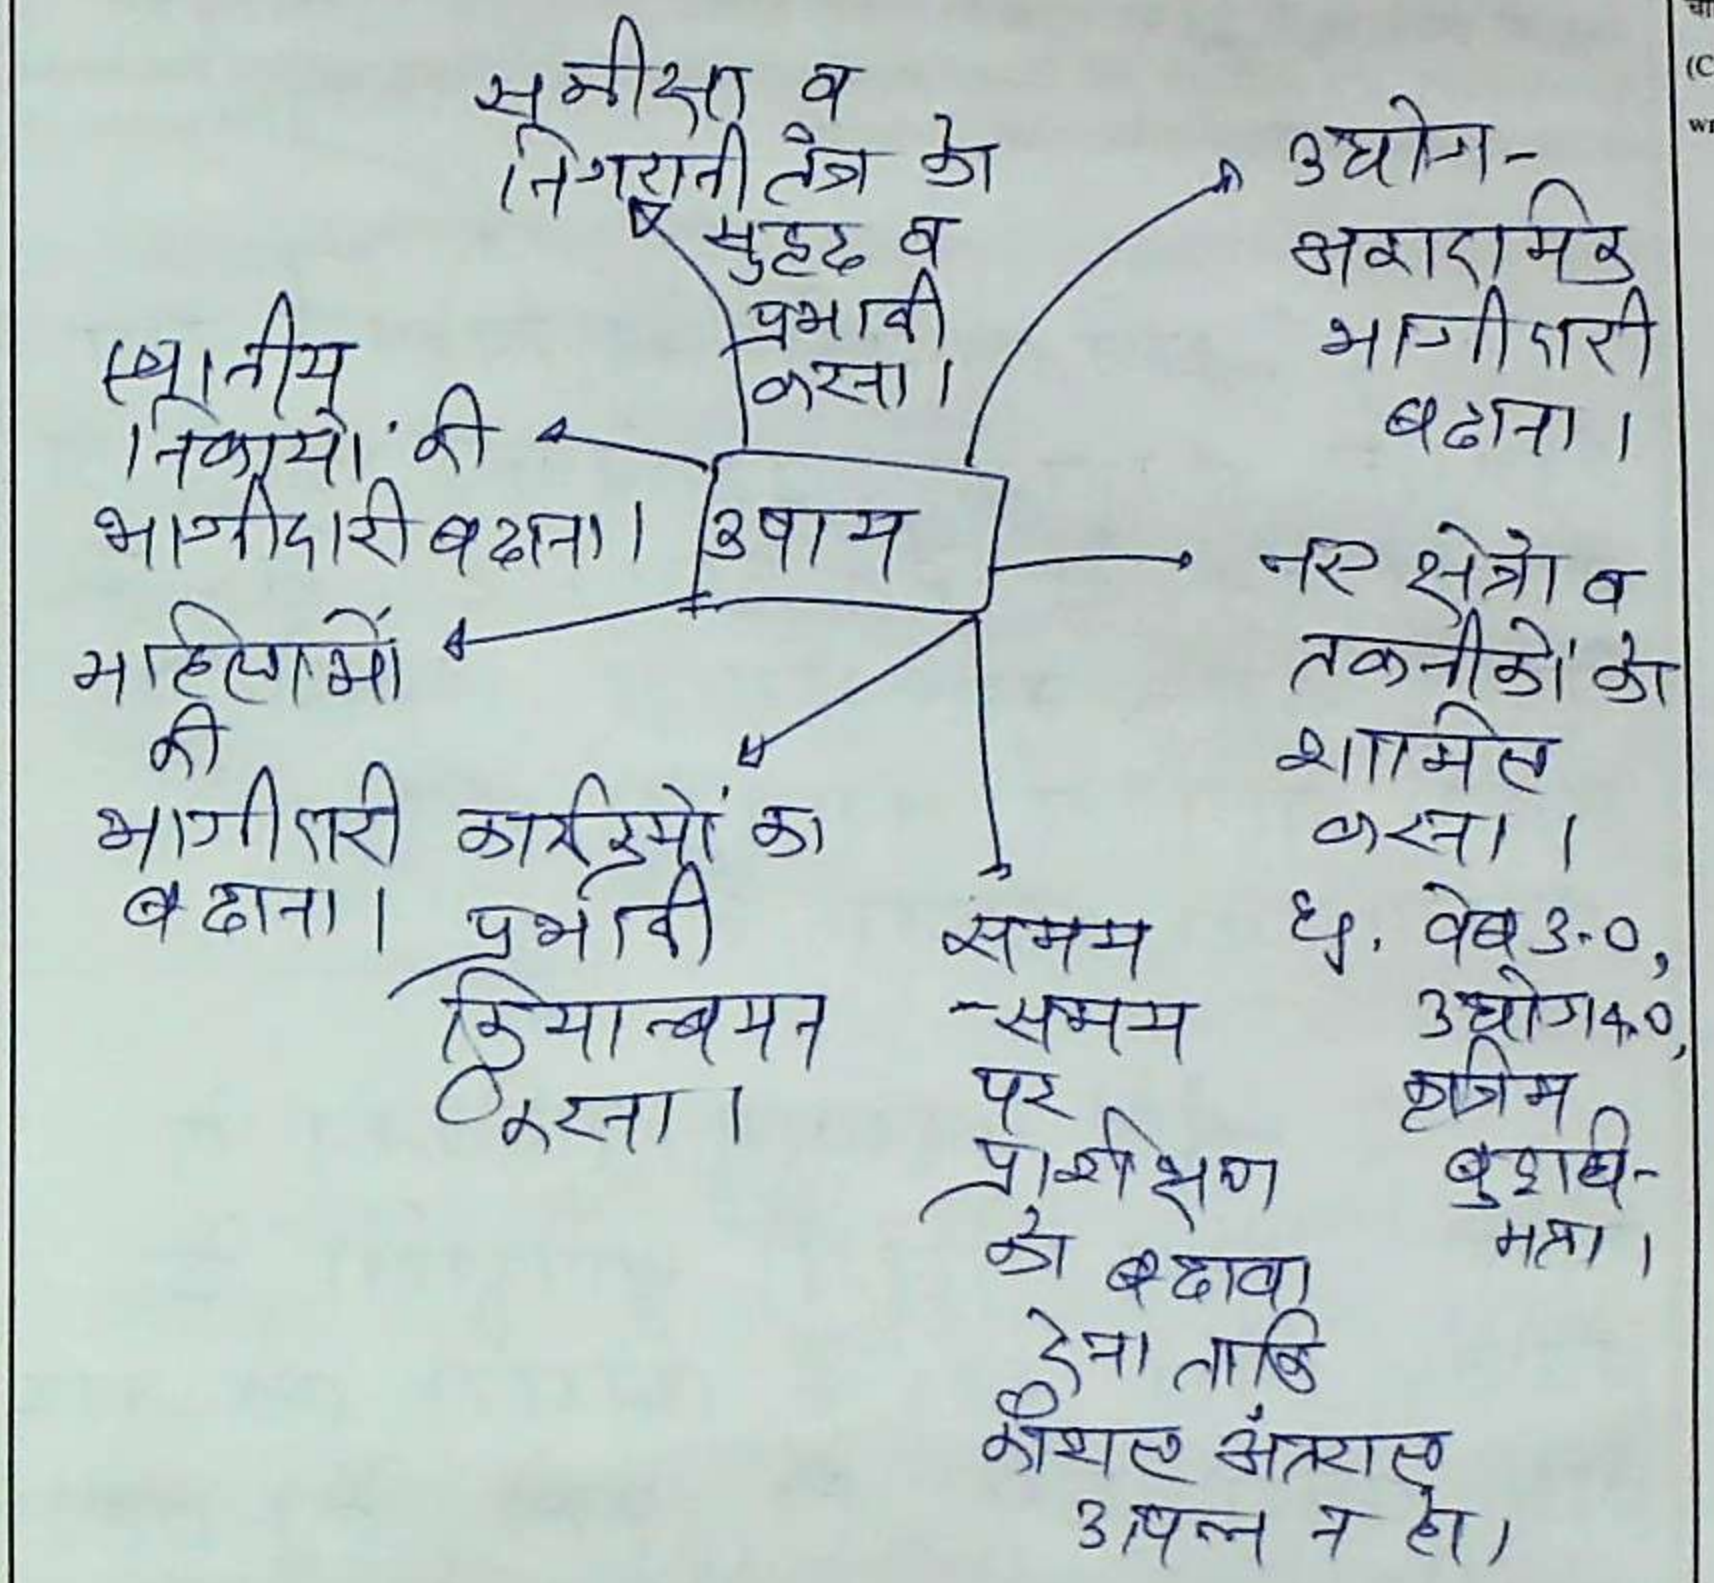 समीक्षा व
निगरानी तंत्र को
सुदृढ व
प्रभावी
करना।
उद्योग-
अकादमिक
भागीदारी
बढाना।
स्थानीय
निकायों की
भागीदारी बढाना।
उपाय
नए क्षेत्रों व
तकनीकों को
शामिल
करना।
वेब 3.0,
उद्योग 4.0,
कृत्रिम
बुद्धि-
मत्ता।
महिलाओं
की
भागीदारी
बढाना।
कार्यक्रमों का
प्रभावी
क्रियान्वयन
करना।
समय
-समय
पर
प्रशिक्षण
को बढावा
देना ताकि
कौशल अंतराल
उत्पन्न न हो।
(C